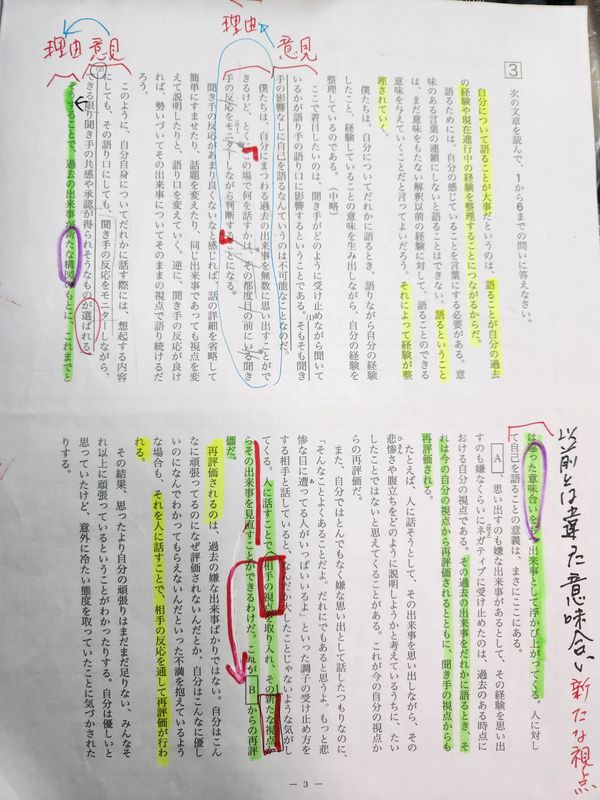 理由 意見
理由 意見
3 次の文章を読んで、1から6までの問いに答えなさい。
自分について語ることが大事だというのは、語ることが自分の過去
の経験や現在進行中の経験を整理することにつながるからだ。
語るためには、自分の感じていることを言葉にする必要がある。意
味のある言葉の連鎖にしないと語ることはできない。語るということ
は、まだ意味をもたない解釈以前の経験に対して、語ることのできる
意味を与えていくことだと言ってよいだろう。それによって経験が整
理されていく。
僕たちは、自分についてだれかに語るとき、語りながら自分の経験
したこと、経験していることの意味を生み出しながら、自分の経験を
整理しているのである。(中略)
ここで着目したいのは、聞き手がどのように受け止めながら聞いて
いるかが語り手の語り口に影響するということである。そもそも聞き
手の影響なしに自己を語るなんていうのは不可能なことなのだ。
僕たちは、自分にまつわる過去の出来事を無数に思い出すことがで
きるけど、とくにこの場で何を話すかは、その都度目の前にいる聞き
手の反応をモニターしながら判断することになる。
聞き手の反応があまり良くないなと感じれば、話の詳細を省略して
簡単にすませたり、話題を変えたり、同じ出来事であっても視点を変
えて説明したりと、語り口を変えていく。逆に、聞き手の反応が良け
れば、勢いづいてその出来事についてそのままの視点で語り続けるだ
ろう。
このように、自分自身についてだれかに話す際には、想起する内容
にしても、その語り口にしても、聞き手の反応をモニターしながら、
できる限り聞き手の共感や承認が得られそうなものが選ばれる。
そうすることで、過去の出来事が新たな構図のもとに、これまでと
以前とは違た意味合い 新たな視点
は違った意味合いをもつ出来事として浮かび上がってくる。人に対し
て自己を語ることの意義は、まさにここにある。
A 思い出すのも嫌な出来事があるとして、その経験を思い出
すのも嫌なくらいにネガティブに受け止めたのは、過去のある時点に
おける自分の視点である。その過去の出来事をだれかに語るとき、そ
れは今の自分の視点から再評価されるとともに、聞き手の視点からも
再評価される。
たとえば、人に話そうとして、その出来事を思い出しながら、その
悲惨さや腹立ちをどのように説明しようかと考えているうちに、たい
したことではないと思えてくることがある。これが今の自分の視点か
らの再評価だ。
また、自分ではとんでもなく嫌な思い出として話したつもりなのに、
「そんなことよくあることだよ。だれにでもあると思うよ。もっと悲
惨な目に遭ってる人がいっぱいいるよ」といった調子の受け止め方を
する相手と話していると、なんだか大したことじゃないような気がし
てくる。人に話すことで、相手の視点を取り入れ、その新たな視点か
らその出来事を見直すことができるわけだ。これが B からの再評
価だ。
再評価されるのは、過去の嫌な出来事ばかりではない。自分はこん
なに頑張ってるのになぜ評価されないんだとか、自分はこんなに優し
いのになんでわかってもらえないんだといった不満を抱えているよう
な場合も、それを人に話すことで、相手の反応を通して再評価が行わ
れる。
その結果、思ったより自分の頑張りはまだまだ足りない、みんなそ
れ以上に頑張っているということがわかったりする。自分は優しいと
思っていたけど、意外に冷たい態度を取っていたことに気づかされた
りする。
― 3 ―